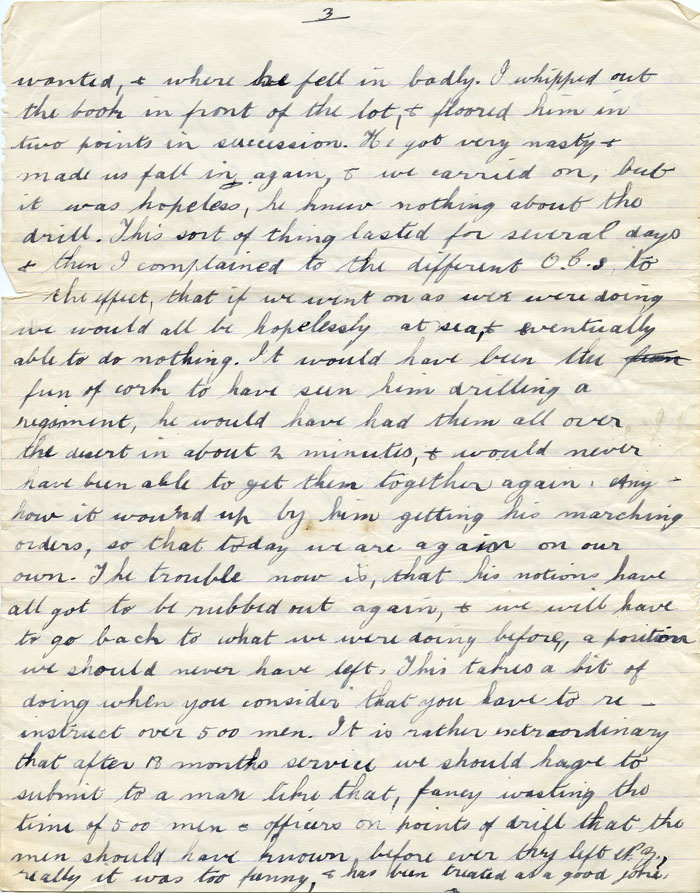 3
wanted, & where he fell in badly. I whipped out
the book in front of the lot, & floored him in
two points in succession. He got very nasty &
made us fall in again, & we carried on, but
it was hopeless, he knew nothing about the
drill. This sort of thing lasted for several days
& then I complained to the different O.C.s, to
the effect, that if we went on as wee were doing
we would all be hopelessly at sea, & eventually
able to do nothing. It would have been the
fun of cork to have seen him drilling a
regiment, he would have had them all over
the desert in about 2 minutes, & would never
have been able to get them together again. Any-
how it wound up by him getting his marching
orders, so that today we are again on our
own. The trouble now is, that his notions have
all got to be rubbed out again, & we will have
to go back to what we were doing before, a position
we should never have left. This takes a bit of
doing when you consider that you have to re-
instruct over 500 men. It is rather extraordinary
that after 18 months service we should have to
submit to a man like that, fancy wasting the
time of 500 men & officers on points of drill that the
men should have known before ever they left N.Z.,
really it was too funny, & has been treated as a good joke.